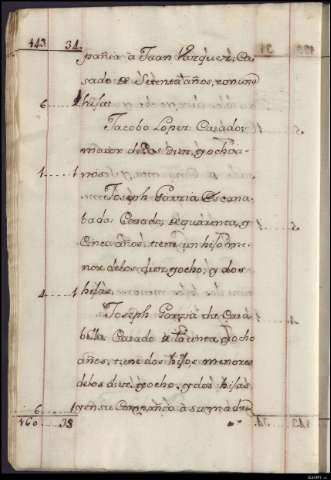 143 34
pañia à Juan Vazquez, Ca
sado de Setenta años, con una
6 1 hija
Jacobo Lopez Casado
maior de los diez, y ocho a
1 1 nos
Joseph Garzia Escana
bada Casado, de quarenta, y
Cinco años, tiene un hijo me
nor de los diez y ocho, y dos
4 1 hijas
Joseph Garzia da Casa
Casado de treinta, y ocho
años, tiene dos hijos menores
de los diez, y ocho, y dos hijas
6 1 y en su Compañia à su madre
160 38